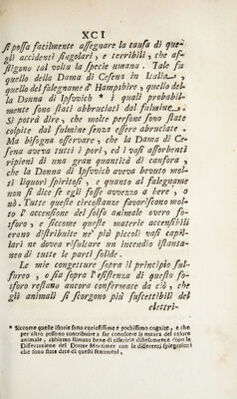 XCI
si possa facilmente assegnare la causa di que-
gli accidenti singolari, e terribili, che af-
fliggono tal volta la specie umana. Tale fu
quello della Dama di Cesena in Italia,
quello del falegname d' Hampshire, quello del-
la Donna di Ipsvvich * i quali probabil-
mente sono stati abbruciati dal fulmine.
Si potrà dire, che molte persone sono state
colpite dal fulmine senza essere abruciate.
Ma bisogna osservare, che la Dama di Ce-
sena aveva tutti i pori, ed i vasi assorbenti
ripieni di una gran quantità di canfora,
che la Donna di Ipsvvich aveva bevuto mol-
ti liquori spiritosi, e quanto al falegname
non si dice se egli fosse avvezzo a bere, o
nò. Tutte queste circostanze favoriscono mol-
to l' accensione del solfo animale ovvero fo-
sforo, e siccome queste materie accensibili
erano distribuite ne' più piccoli vasi capil-
lari ne dovea risultare un incendio istanta-
neo di tutte le parti solide.
Le mie congetture sopra il principio sul-
fureo, o sia sopra l' esistenza di questo fo-
sforo restano ancora confermate da ciò, che
gli animali si scorgono più suscettibili del
elettri-
* Siccome quelle istorie sono curiosissime e pochissimo cognite, e che
per altro possono contribuire a far conoscere la natura del calore
animale, abbiamo stimato bene di riferirle distesamente con la
Dissertazione del Dottor Mortimer con le differenti spiegazioni
che sono state date di questi fenomeni.